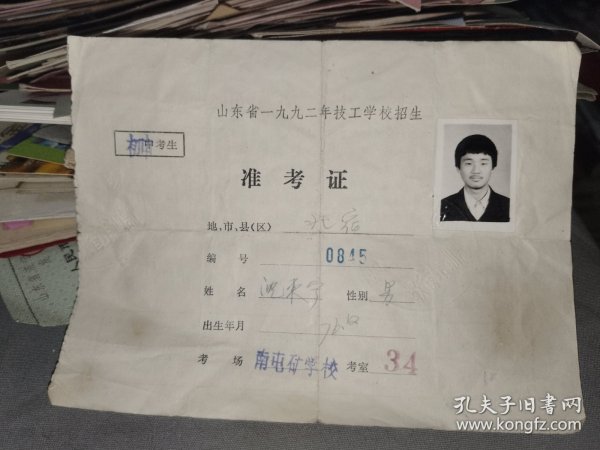 山东省一九九二年技工学校招生
初中考生
准考证
地、市、县(区) 北宿
编号 0845
姓名 性别 男
出生年月
考场 南屯矿学校 考室 34
孔夫子旧书网
www.kongfz.com